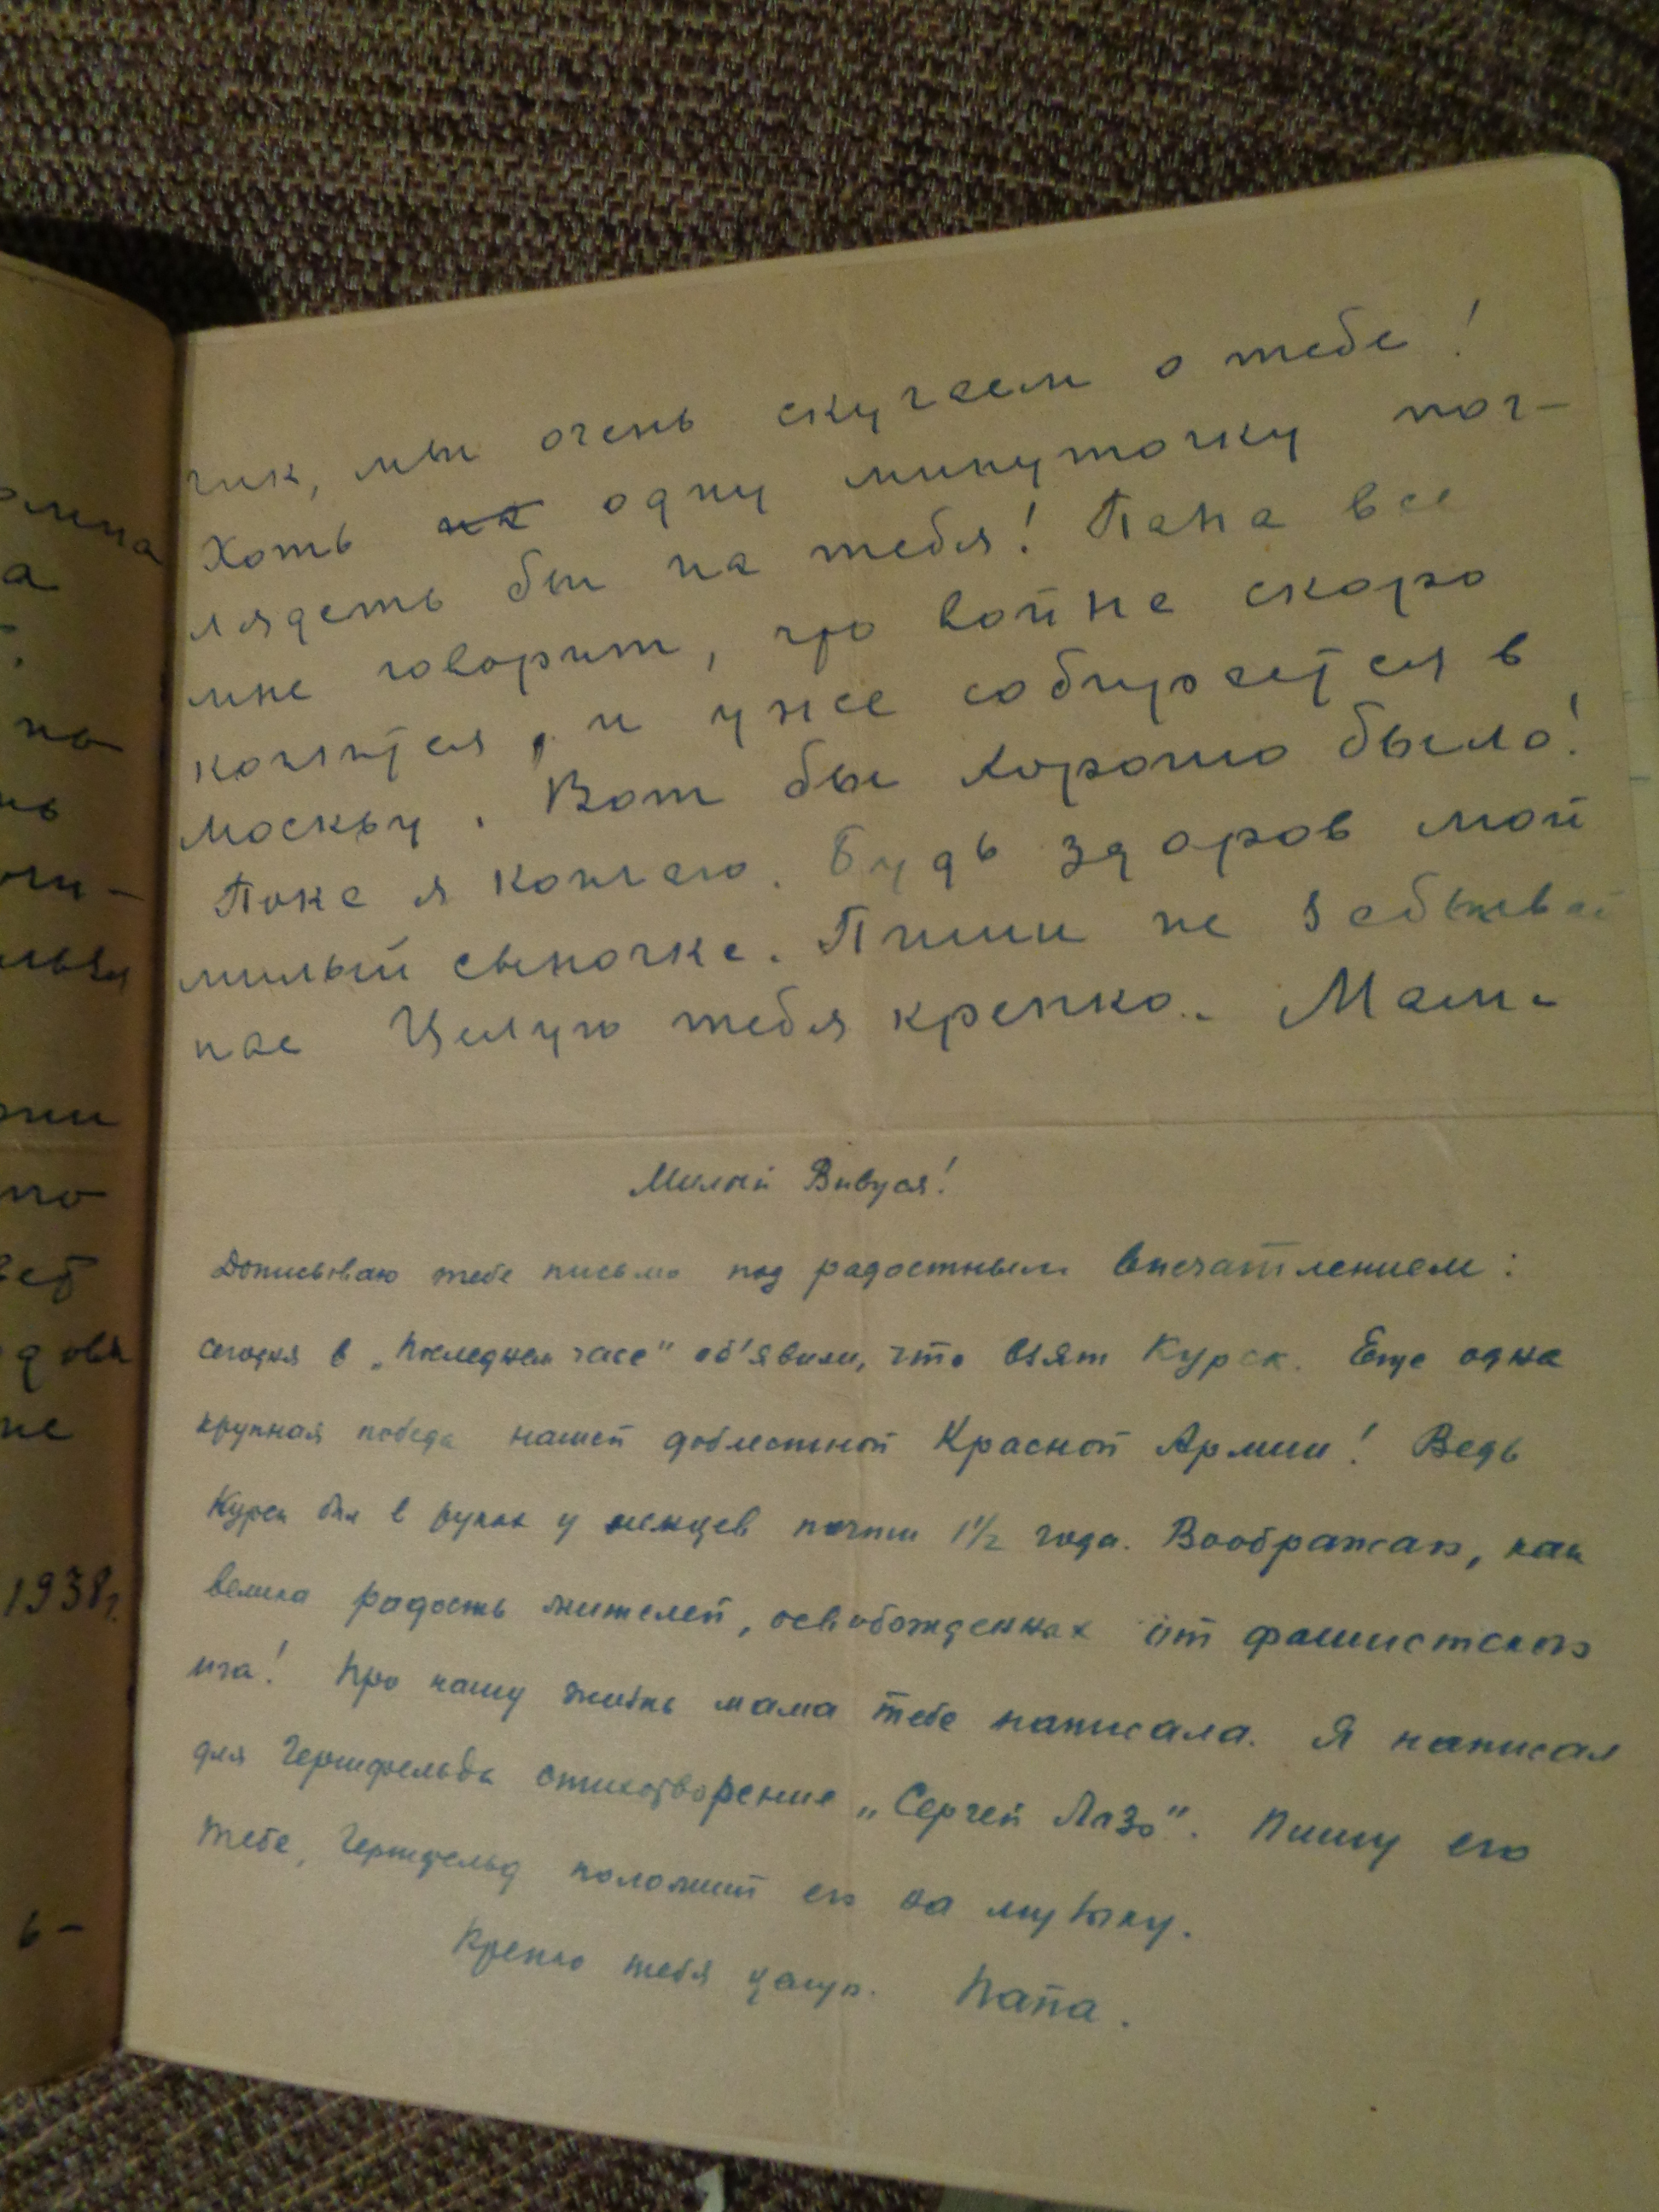 омна
а
но
нь
ми-
льзя
они
но
вет
довл
не
1938г.
ь-
чик, мы очень скучаем о тебе!
Хоть на одну минуточку пог-
лядеть бы на тебя! Папа все
мне говорит, что война скоро
кончится, и уже собирается в
Москву. Вот бы хорошо было!
Пока я кончаю. Будь здоров мой
милый сыночка. Пиши не забывай
нас Целую тебя крепко.. Мама
Милый Вивуся!
Дописываю тебе письмо под радостным впечатлением:
сегодня в „Последнем часе" об'явили, что взят Курск. Еще одна
крупная победа нашей доблестной Красной Армии! Ведь
Курск был в руках у немцев почти 1½ года. Воображаю, как
велика радость жителей, освобожденных от фашистского
ига! Про нашу жизнь мама тебе написала. Я написал
для Гершфельда стихотворение „Сергей Лазо". Пишу его
тебе, Гершфельд положит его на музыку.
Крепко тебя целую. Папа.